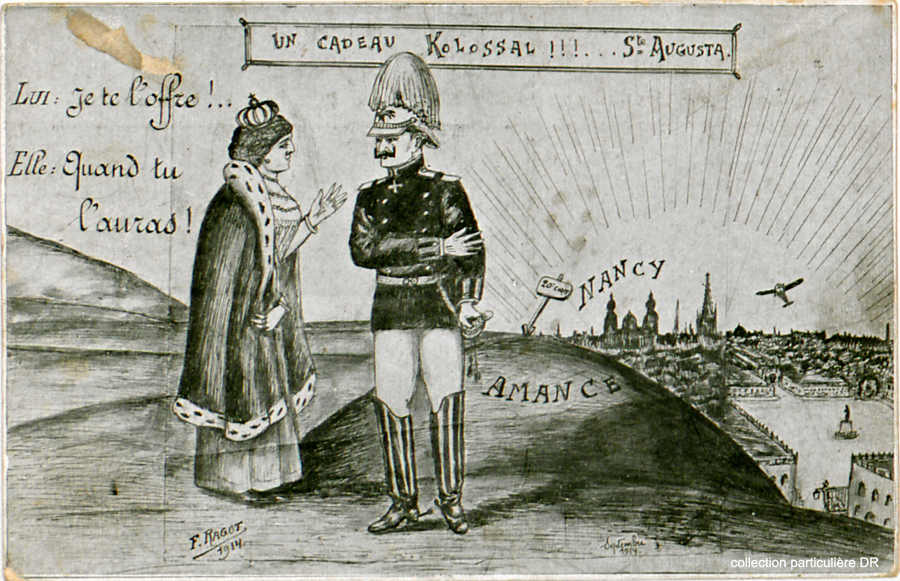 UN CADEAU KOLOSSAL !!!... Ste AUGUSTA.
LUI: Je te l'offre !..
Elle: Quand tu
l'auras !
NANCY
AMANCE
F. RAGOT
1914.
Septembre
1914.
collection particulière DR